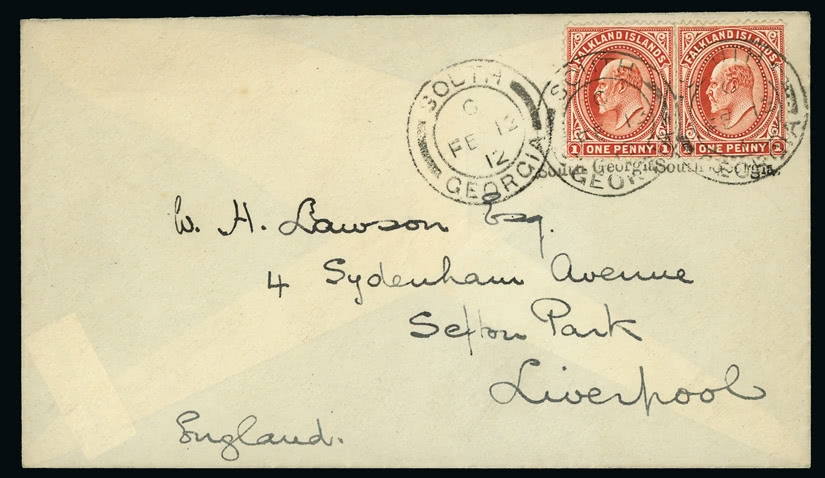 FALKLAND ISLANDS
FALKLAND ISLANDS
1 ONE PENNY 1
1 ONE PENNY 1
SOUTH
C
FE 12
12
GEORGIA
SOUTH
GEORGIA
GEORGIA
South Georgia. South Georgia.
W. H. Lawson Esq.
4 Sydenham Avenue
Sefton Park
Liverpool
England.